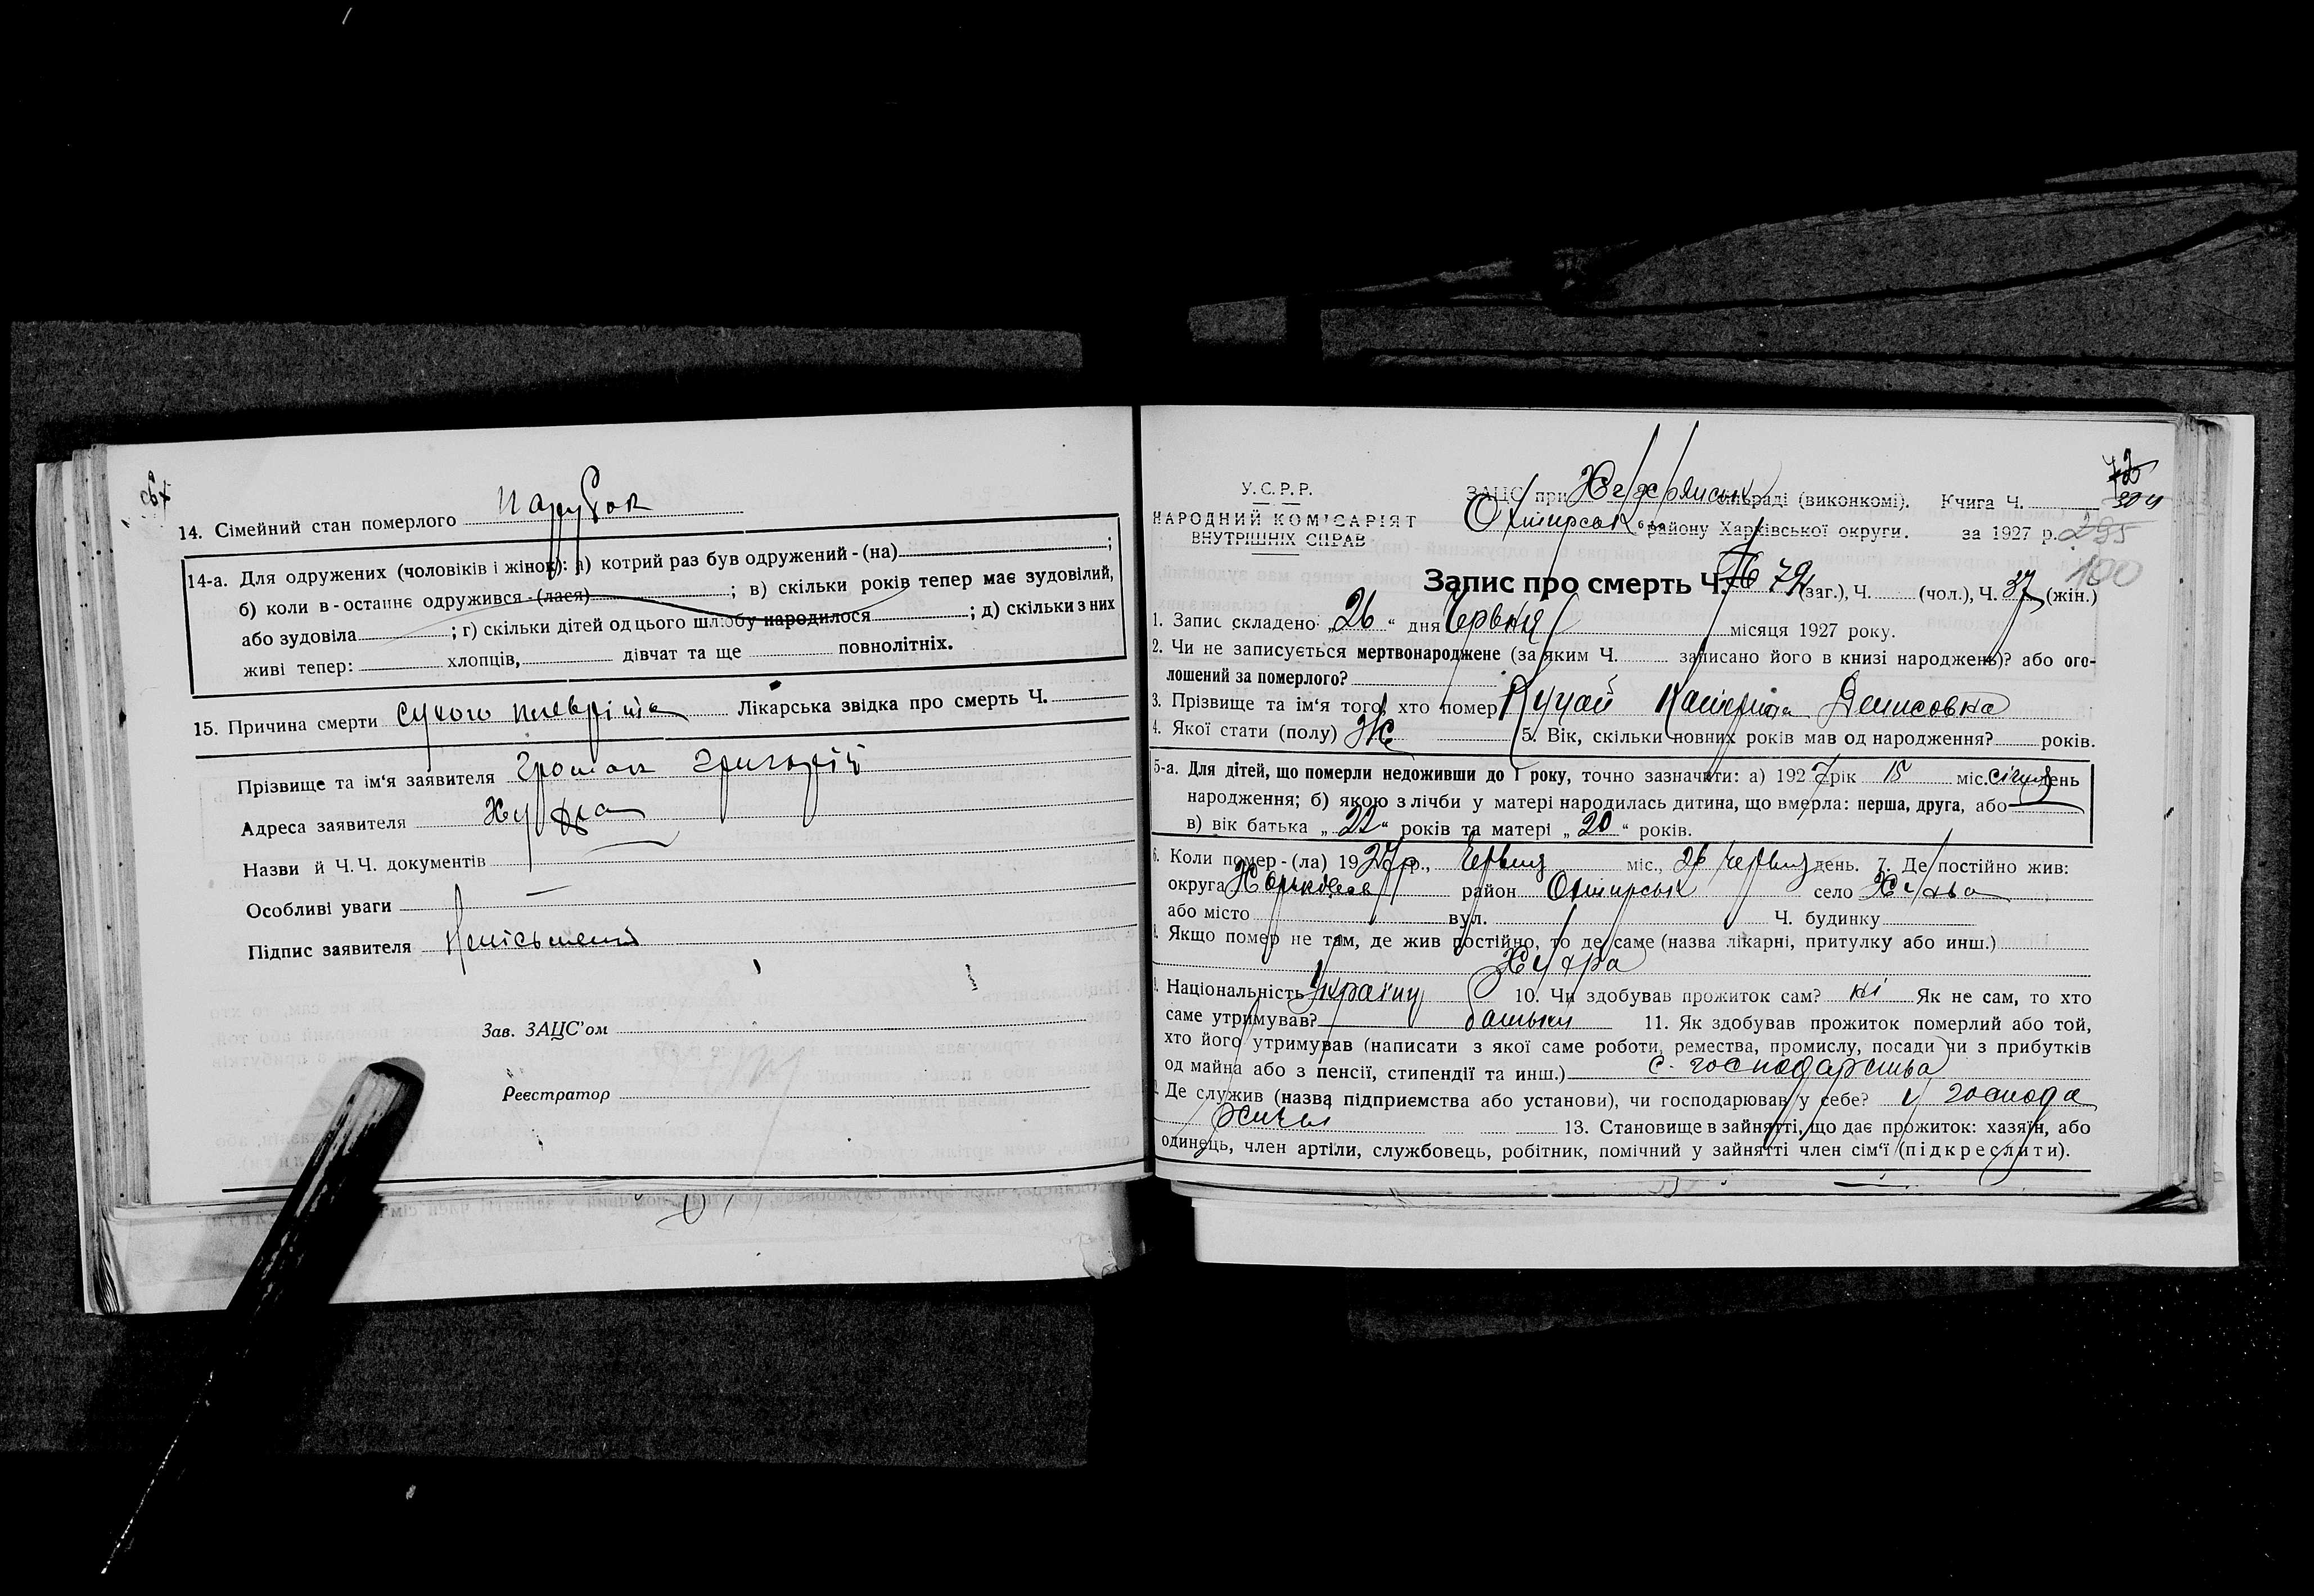 14. Сімейний стан померлого парубок
14-а. Для одружених (чоловіків і жінок): а) котрий раз був одружений - (на) ;
б) коли в-останнє одружився - (лася) ; в) скільки років тепер має зудовілий,
або зудовіла ; г) скільки дітей од цього шлюбу народилося ; д) скільки з них
живі тепер: хлопців, дівчат та ще повнолітніх.
15. Причина смерти сухого плевріта Лікарська звідка про смерть Ч.
Прізвище та ім'я заявителя Григорій
Адреса заявителя
Назви й Ч. Ч. документів
Особливі уваги
Підпис заявителя
Зав. ЗАЦС'ом
Реєстратор
У.С.Р.Р.
НАРОДНИЙ КОМІСАРІЯТ
ВНУТРІШНІХ СПРАВ
72
304
ЗАЦС при сільраді (виконкомі). Книга Ч.
Охтирськ району Харківської округи. за 1927 р. 295
100
Запис про смерть Ч. 76 79 (заг.), Ч. (чол.), Ч. 37 (жін.)
1. Запис складено „ 26 “ дня Червня місяця 1927 року.
2. Чи не записується мертвонароджене (за яким Ч. записано його в книзі народжень)? або ого-
лошений за померлого?
3. Прізвище та ім'я того, хто помер Кучай Катерина Денисовна
4. Якої стати (полу) Ж 5. Вік, скільки повних років мав од народження? років.
5-а. Для дітей, що померли недоживши до 1 року, точно зазначити: а) 1927 рік 15 міс. січня день
народження; б) якою з лічби у матері народилась дитина, що вмерла: перша, друга, або
в) вік батька „ 22 “ років та матері „ 20 “ років.
6. Коли помер - (ла) 1927 р., Червня міс., 26 червня день. 7. Де постійно жив:
округа Харківськ район Охтирськ село
або місто вул. Ч. будинку
Якщо помер не там, де жив постійно, то де саме (назва лікарні, притулку або инш.)
Національність Україн 10. Чи здобував прожиток сам? ні Як не сам, то хто
саме утримував? батьки 11. Як здобував прожиток померлий або той,
хто його утримував (написати з якої саме роботи, ремества, промислу, посади чи з прибутків
од майна або з пенсії, стипендії та инш.) с. господарства
Де служив (назва підприємства або установи), чи господарював у себе? у господа
13. Становище в зайнятті, що дає прожиток: хазяїн, або
одинець, член артіли, службовець, робітник, помічний у зайнятті член сім'ї (підкреслити).